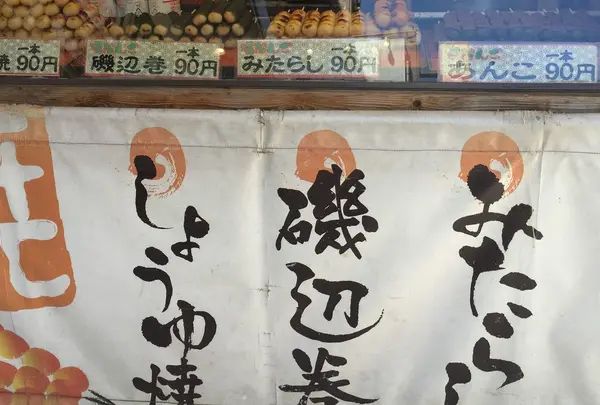 焼 一本 90円
磯辺巻 一本 90円
みたらし 一本 90円
あんこ 一本 90円
みたらし
磯辺巻
しょうゆ焼